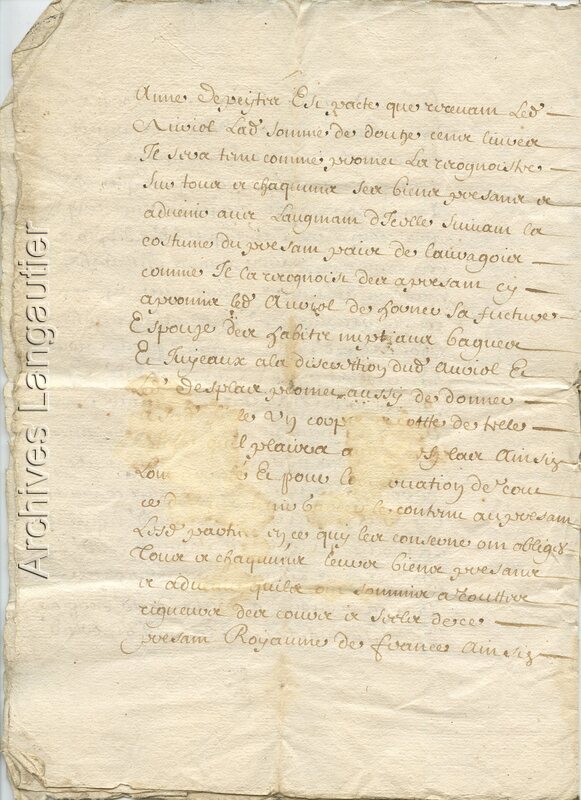 Anne depeytra Est pacte que recevant Led
Auriol Lad somme de doutze cens livres
Il sera tenu comme promet La recognoistre
sur tous et chaquuns ses biens presans et
advenir aux Laugmant dicelle suivant la
costume du presant paiis de lauragois
comme Il la recognoist des apresant cy
apromis led Auriol de dorner sa futture
Espouze des habits nuptiaux bagues
Et Juyeaux a la discretion dud Auriol Et
Le desplax promet aussy de donner
le un cotte de telle
Il plaira a Ainsin
Et pour le de tout
ce le contenu au presant
Lesd parties en ce quy les conserne ont obliges
Tous et chaquuns leurs biens presans
et adv quils ont sommis a touttes
rigueurs des cours et seels de ce
presant Royaume de france Ainsin
Archives Langautier